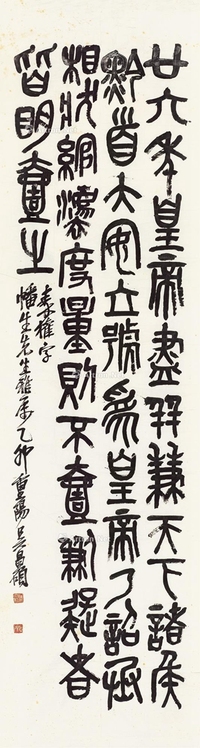 廿六年皇帝盡并兼天下諸侯
黔首大安立號為皇帝乃詔丞
相狀綰灋度量則不壹歉疑者
皆明壹之
秦權字
幡生先生雅屬乙卯重陽吳昌碩